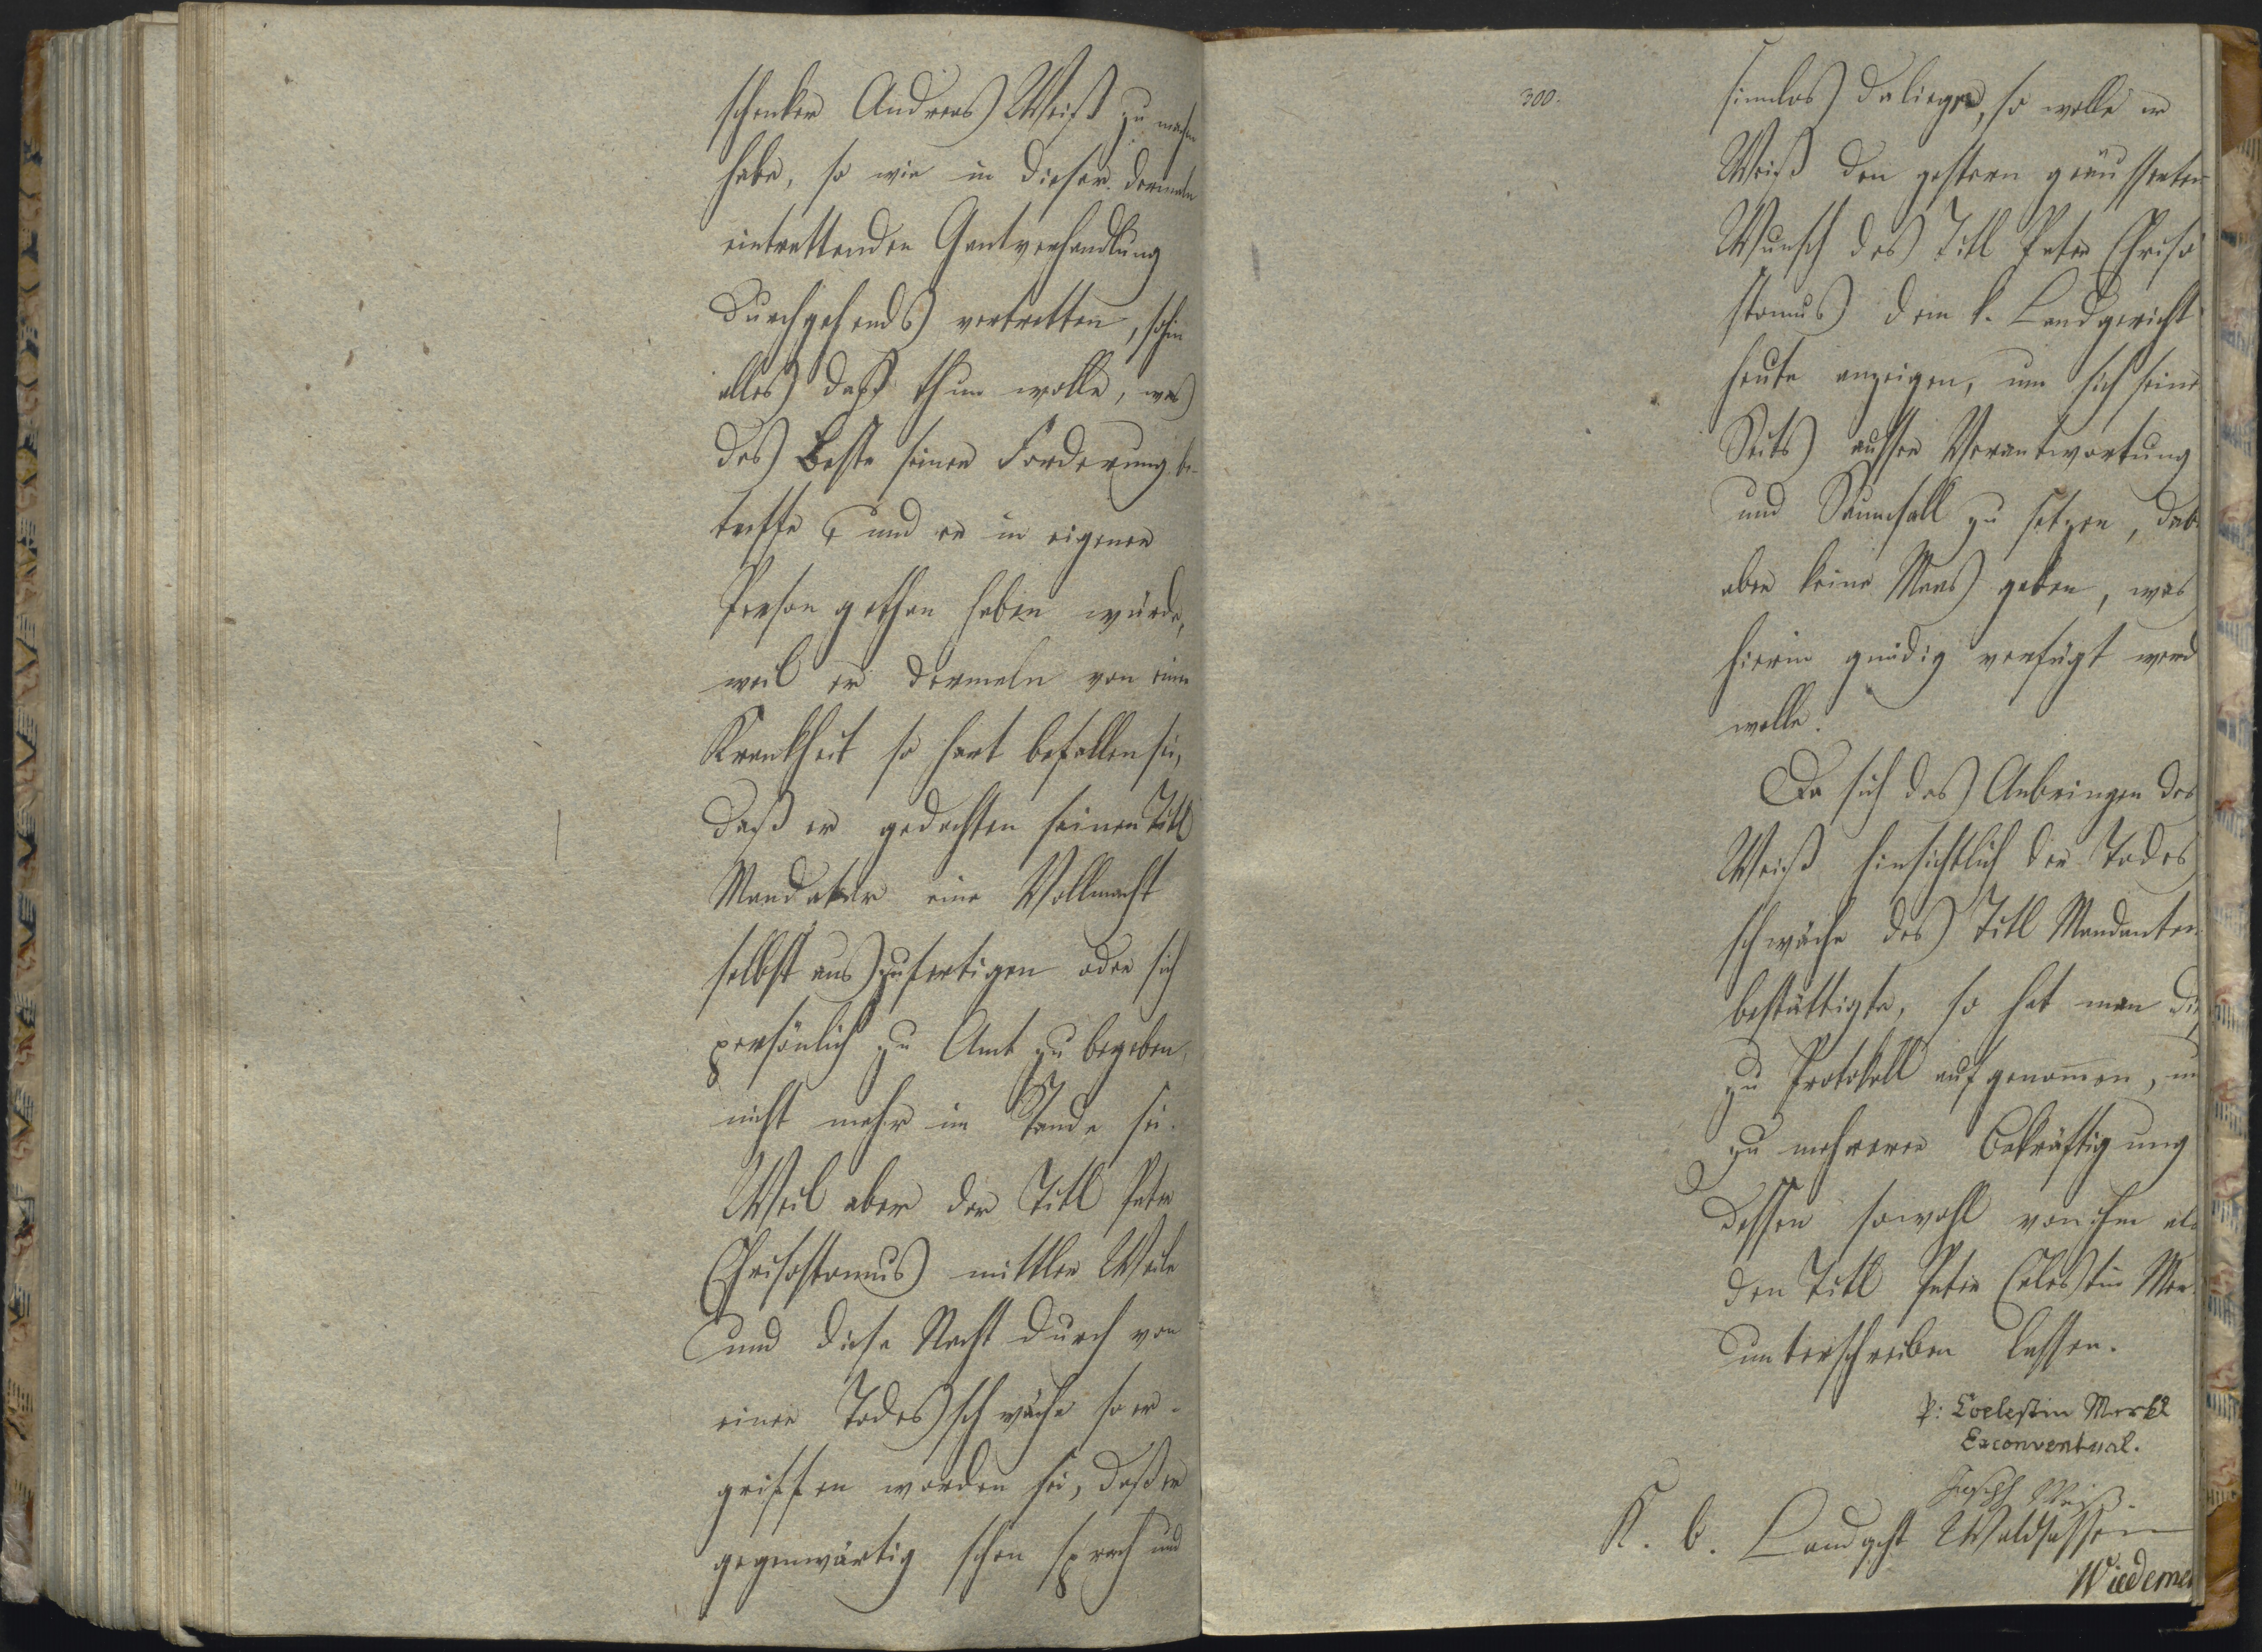 schenker Andreas Weiß zu machen
habe, so wie in dieser dermaln
eintrettenden Gantverhandlung
durchgehends vertretten, sohin
alles daß thun wolle, was
das Beste seiner Forderung be-
treffe und er in eigener
Person gethan haben würde,
weil er dermaln von einer
Krankheit so hart befallen sei,
daß er gedachten seinen Titl
Mandatar eine Vollmacht
selbst auszufertigen oder sich
persönlich zu Amt zu begeben
nicht mehr im Stande sei.
Weil aber der Titl Pater
Chrisostomus mittler Weile
und diese Nacht durch von
einer Todesschwäche so er-
griffen worden sei, daß er
gegenwärtig schon sprach und
300.
sinnlos daliege, so wolle er
Weiß den gestern geäusserten
Wunsch des Titl Pater Chriso
stomus dem k. Landgericht
heute anzeigen, um sich seiner
Seits ausser Verantwortung
und Saumsall zu setzen, dab
aber keine Maas geben, was
hierin gnädig verfügt werd
wolle.
Da sich das Anbringen des
Weiß hinsichtlich der Todes
schwäche des Titl Mandanten
bestättigte, so hat man die
zu Protokoll aufgenom̅en, un
zu mehrerer Bekräftigung
dessen sowohl von ihm als
den Titl Pater Celestin Mer
unterschreiben lassen.
P: Coelestin Merkl
Exconventual.
Joseph Weiß.
K. b. Landgcht Waldsassen
Wiedeme